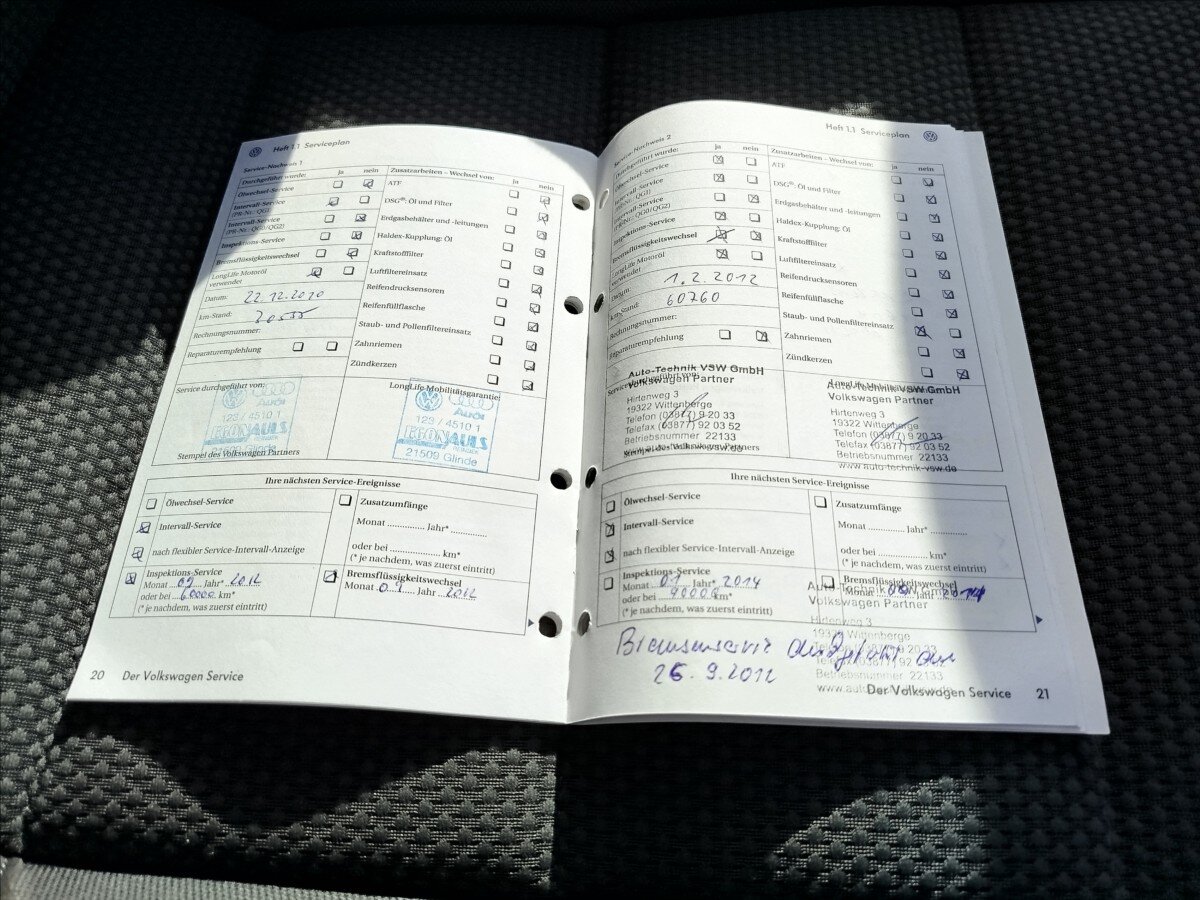 Heft 1.1 Serviceplan
Service-Nachweis 1
Durchgeführt wurde: ja nein
Ölwechsel-Service
Intervall-Service
(PR-Nr.: QG1)
Intervall-Service
(PR-Nr.: QG0/QG2)
Inspektions-Service
Bremsflüssigkeitswechsel
LongLife Motoröl
verwendet
Datum: 22.12.2010
km-Stand:
Rechnungsnummer:
Reparaturempfehlung
Zusatzarbeiten – Wechsel von: ja nein
ATF
DSG®: Öl und Filter
Erdgasbehälter und -leitungen
Haldex-Kupplung: Öl
Kraftstofffilter
Luftfiltereinsatz
Reifendrucksensoren
Reifenfüllflasche
Staub- und Pollenfiltereinsatz
Zahnriemen
Zündkerzen
Service durchgeführt von:
Audi
123 / 4510 1
KRONAULS
Stempel des Volkswagen Partners
LongLife Mobilitätsgarantie:
Audi
123 / 4510 1
KRONAULS
21509 Glinde
Ihre nächsten Service-Ereignisse
Ölwechsel-Service
Intervall-Service
nach flexibler Service-Intervall-Anzeige
Inspektions-Service
Monat 09 Jahr* 2012
oder bei 60000 km*
(* je nachdem, was zuerst eintritt)
Zusatzumfänge
Monat ............... Jahr* ..............
oder bei .................... km*
(* je nachdem, was zuerst eintritt)
Bremsflüssigkeitswechsel
Monat 09 Jahr 2012
20 Der Volkswagen Service
Heft 1.1 Serviceplan
Service-Nachweis 2
Durchgeführt wurde: ja nein
Ölwechsel-Service
Intervall-Service
(PR-Nr.: QG1)
Intervall-Service
(PR-Nr.: QG0/QG2)
Inspektions-Service
Bremsflüssigkeitswechsel
LongLife Motoröl
verwendet
Datum: 1.2.2012
km-Stand: 60760
Rechnungsnummer:
Reparaturempfehlung
Zusatzarbeiten – Wechsel von: ja nein
ATF
DSG®: Öl und Filter
Erdgasbehälter und -leitungen
Haldex-Kupplung: Öl
Kraftstofffilter
Luftfiltereinsatz
Reifendrucksensoren
Reifenfüllflasche
Staub- und Pollenfiltereinsatz
Zahnriemen
Zündkerzen
Service durchgeführt von:
Auto-Technik VSW GmbH
Volkswagen Partner
Hirtenweg 3
19322 Wittenberge
Telefon (03877) 9 20 33
Telefax (03877) 92 03 52
Betriebsnummer 22133
www.auto-technik-vsw.de
Stempel des Volkswagen Partners
LongLife Mobilitätsgarantie:
Auto-Technik VSW GmbH
Volkswagen Partner
Hirtenweg 3
19322 Wittenberge
Telefon (03877) 9 20 33
Telefax (03877) 92 03 52
Betriebsnummer 22133
www.auto-technik-vsw.de
Ihre nächsten Service-Ereignisse
Ölwechsel-Service
Intervall-Service
nach flexibler Service-Intervall-Anzeige
Inspektions-Service
Monat 01 Jahr* 2014
oder bei 90000 km*
(* je nachdem, was zuerst eintritt)
Zusatzumfänge
Monat ............ Jahr* ............
oder bei .................... km*
(* je nachdem, was zuerst eintritt)
Bremsflüssigkeitswechsel
Monat Jahr 2014
Auto-Technik VSW GmbH
Volkswagen Partner
Hirtenweg 3
19322 Wittenberge
Telefon (03877) 9 20 33
Telefax (03877) 92 03 52
Betriebsnummer 22133
26.9.2012
Der Volkswagen Service 21